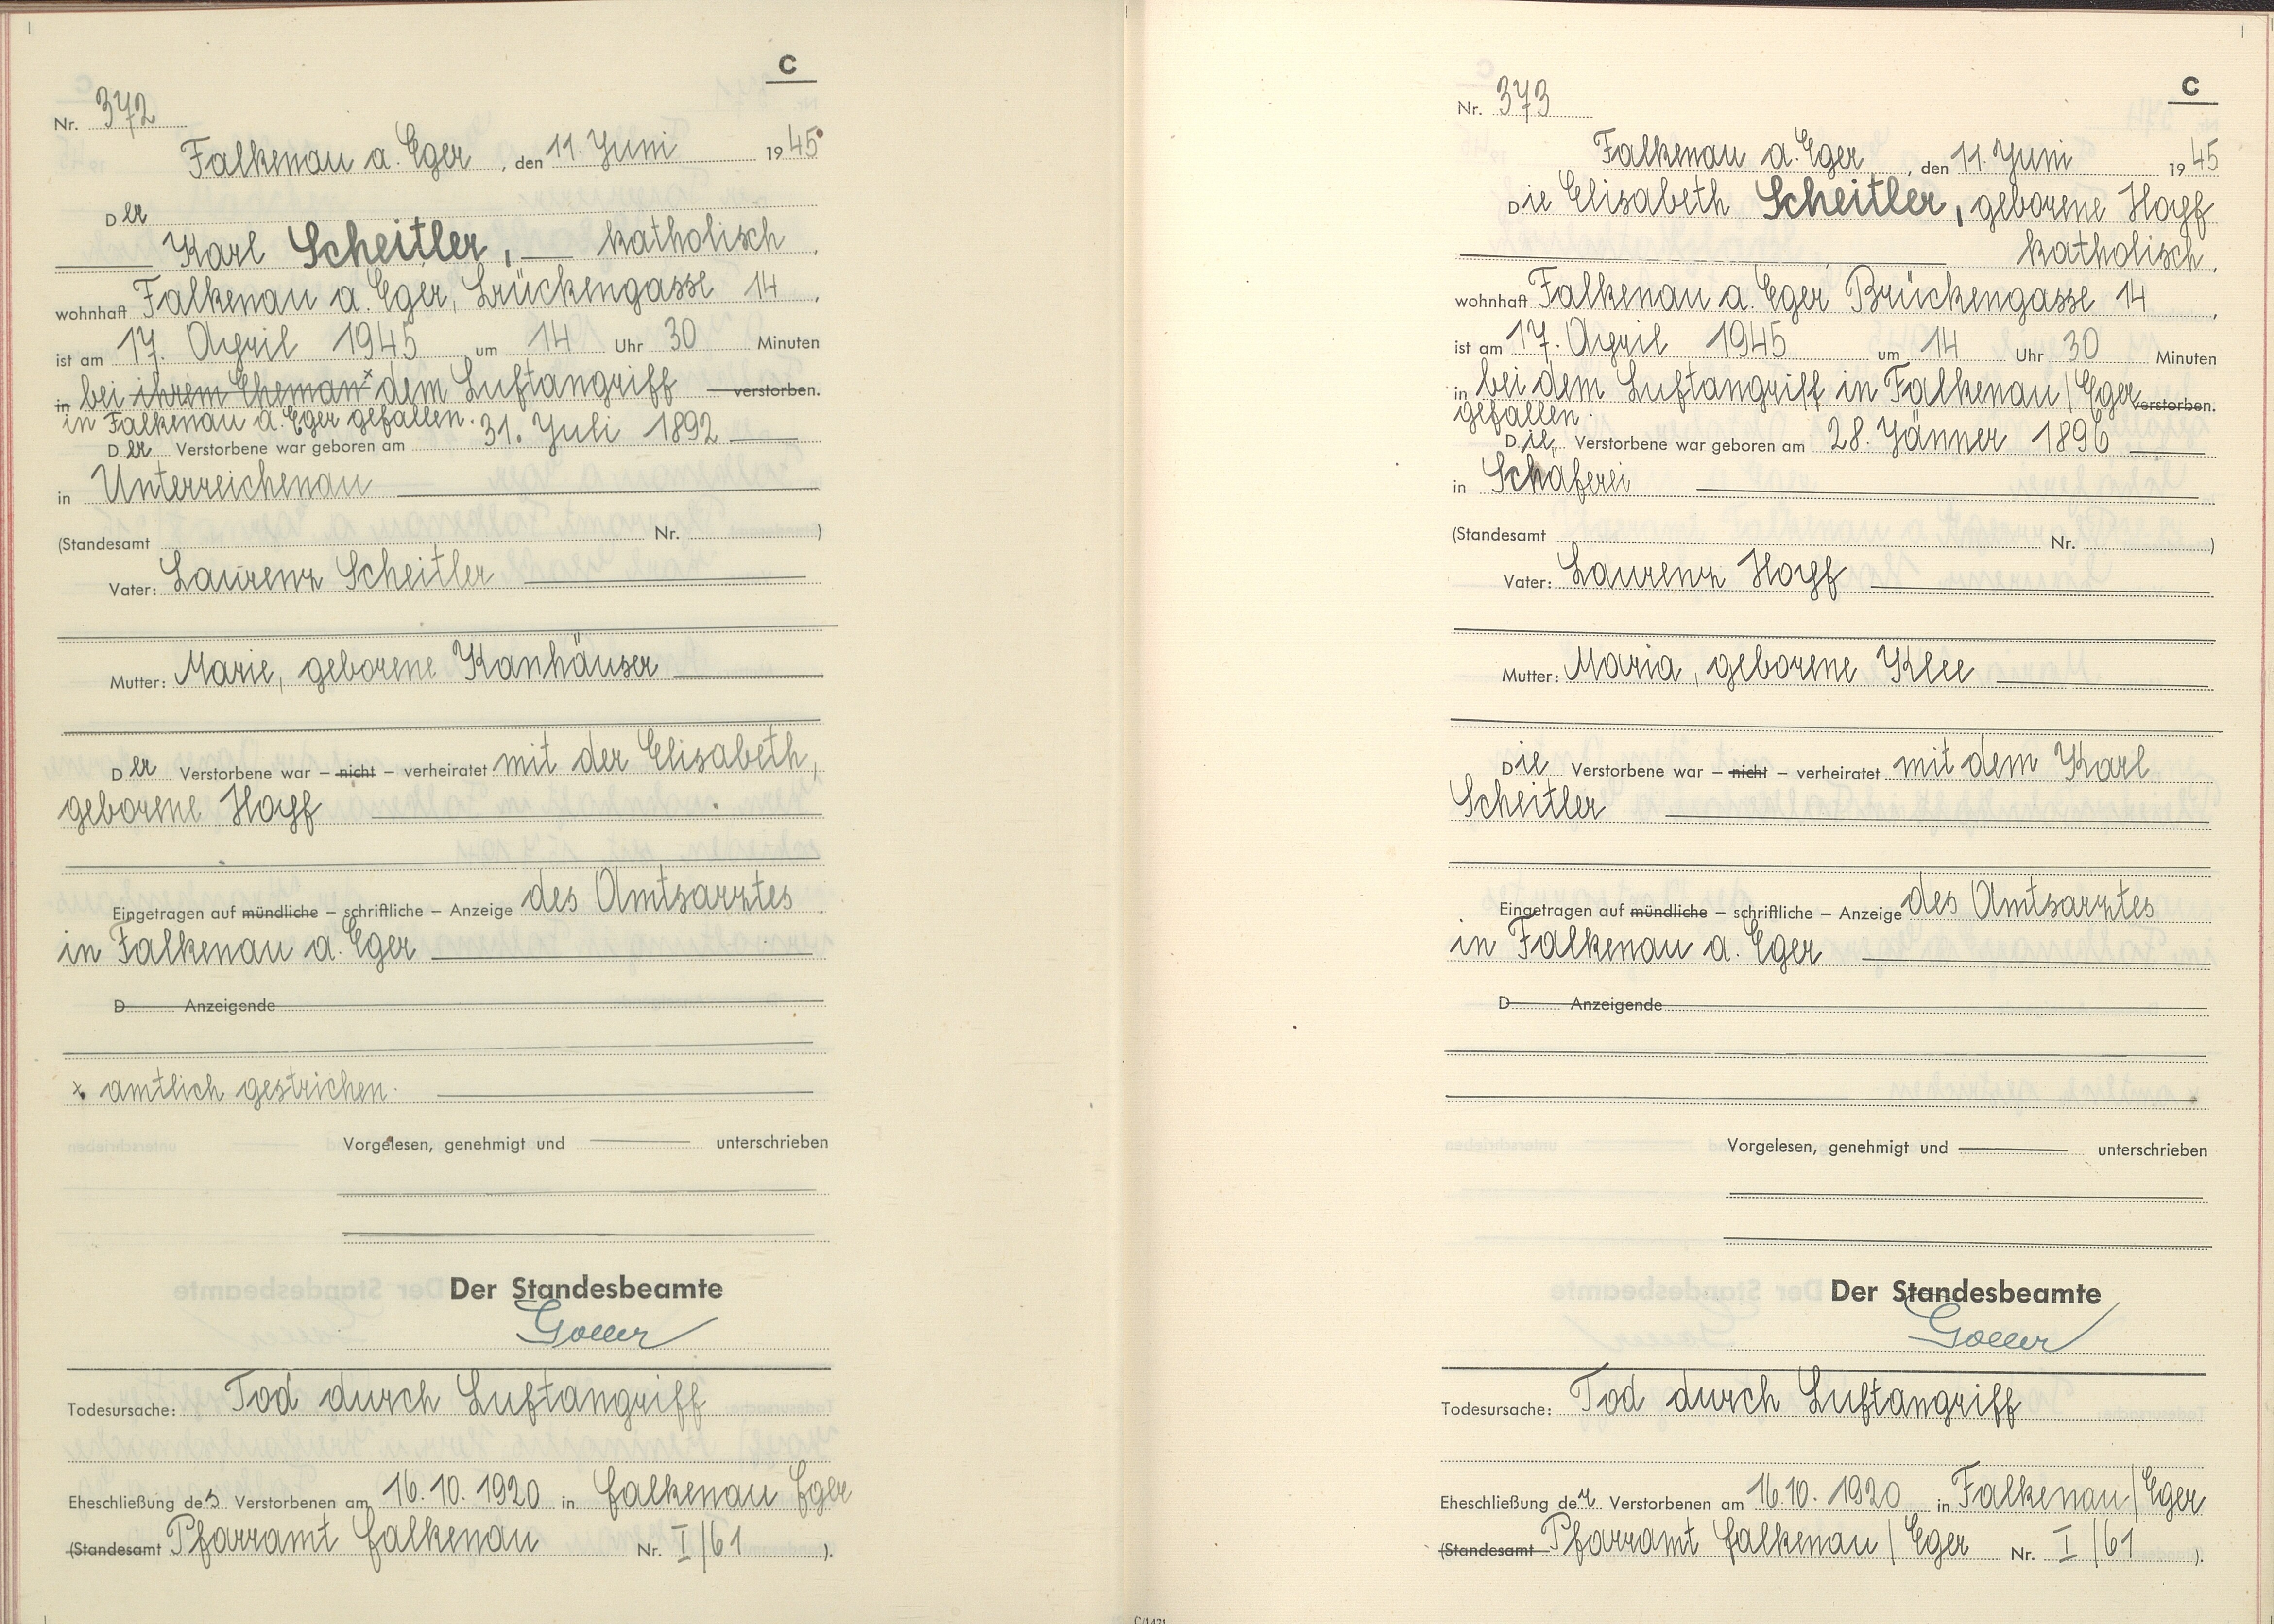 C
Nr. 372
Falkenau a. Eger, den 11. Juni 1945
Der
Karl Scheitler, katholisch,
wohnhaft Falkenau a. Eger, Brückengasse 14,
ist am 17. April 1945 um 14 Uhr 30 Minuten
in bei ihrem Eheman x dem Luftangriff verstorben.
in Falkenau a. Eger gefallen.
Der Verstorbene war geboren am 31. Juli 1892
in Unterreichenau
(Standesamt Nr. )
Vater: Laurenz Scheitler
Mutter: Marie, geborene Kanhäuser
Der Verstorbene war – nicht – verheiratet mit der Elisabeth,
geborene Hopf
Eingetragen auf mündliche – schriftliche – Anzeige des Amtsarztes
in Falkenau a. Eger
D Anzeigende
x amtlich gestrichen.
Vorgelesen, genehmigt und unterschrieben
Der Standesbeamte
Goller
Todesursache: Tod durch Luftangriff
Eheschließung des Verstorbenen am 16.10.1920 in Falkenau Eger
(Standesamt Pfarramt Falkenau Nr. I/61 ).
C
Nr. 373
Falkenau a. Eger, den 11. Juni 1945
Die Elisabeth Scheitler, geborene Hopf
katholisch,
wohnhaft Falkenau a. Eger Brückengasse 14,
ist am 17. April 1945 um 14 Uhr 30 Minuten
in bei dem Luftangriff in Falkenau/Eger verstorben.
gefallen.
Die Verstorbene war geboren am 28. Jänner 1896
in Schäferei
(Standesamt Nr. )
Vater: Laurenz Hopf
Mutter: Maria, geborene Klee
Die Verstorbene war – nicht – verheiratet mit dem Karl
Scheitler
Eingetragen auf mündliche – schriftliche – Anzeige des Amtsarztes
in Falkenau a. Eger
D Anzeigende
Vorgelesen, genehmigt und unterschrieben
Der Standesbeamte
Goller
Todesursache: Tod durch Luftangriff
Eheschließung der Verstorbenen am 16.10.1920 in Falkenau/Eger
(Standesamt Pfarramt Falkenau/Eger Nr. I/61 ).